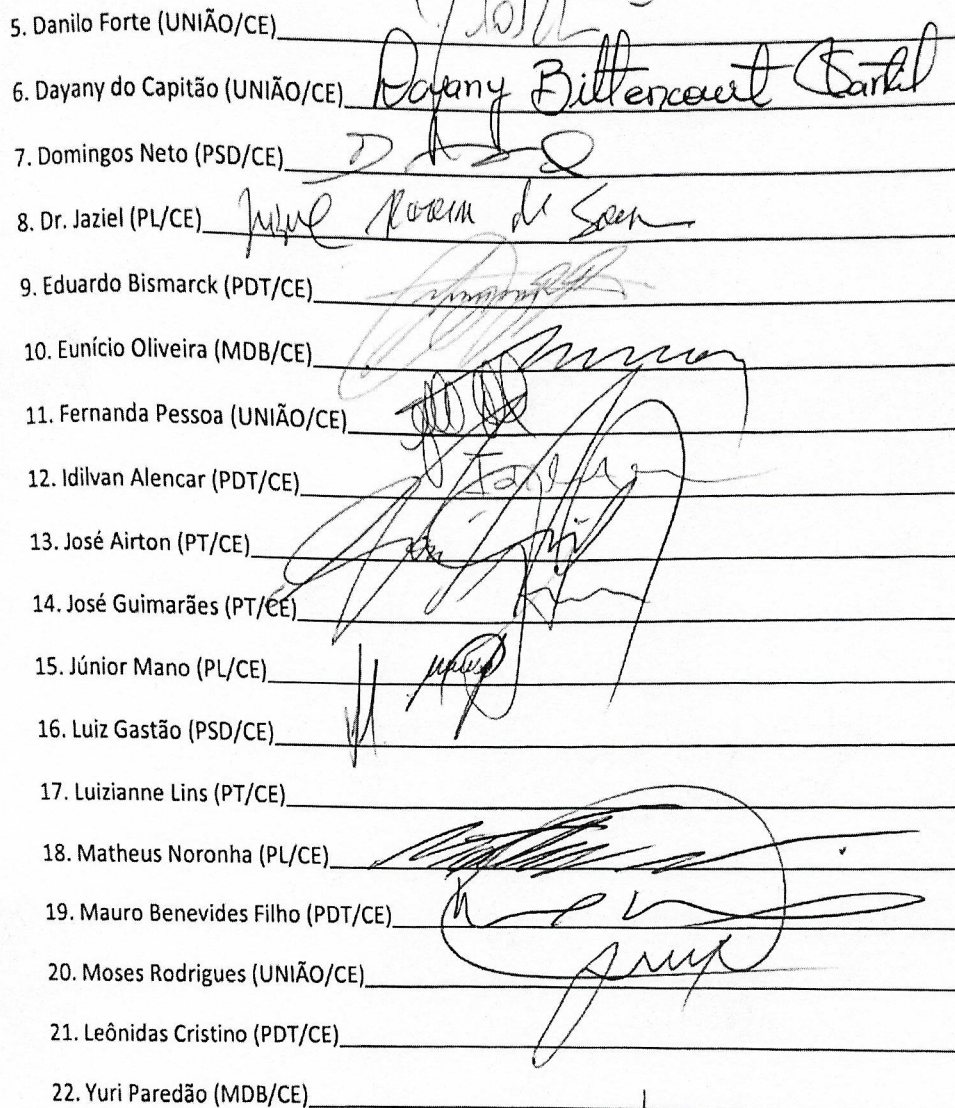 5. Danilo Forte (UNIÃO/CE)
6. Dayany do Capitão (UNIÃO/CE) Dayany Bittencourt
7. Domingos Neto (PSD/CE)
8. Dr. Jaziel (PL/CE)
9. Eduardo Bismarck (PDT/CE)
10. Eunício Oliveira (MDB/CE)
11. Fernanda Pessoa (UNIÃO/CE)
12. Idilvan Alencar (PDT/CE)
13. José Airton (PT/CE)
14. José Guimarães (PT/CE)
15. Júnior Mano (PL/CE)
16. Luiz Gastão (PSD/CE)
17. Luizianne Lins (PT/CE)
18. Matheus Noronha (PL/CE)
19. Mauro Benevides Filho (PDT/CE)
20. Moses Rodrigues (UNIÃO/CE)
21. Leônidas Cristino (PDT/CE)
22. Yuri Paredão (MDB/CE)